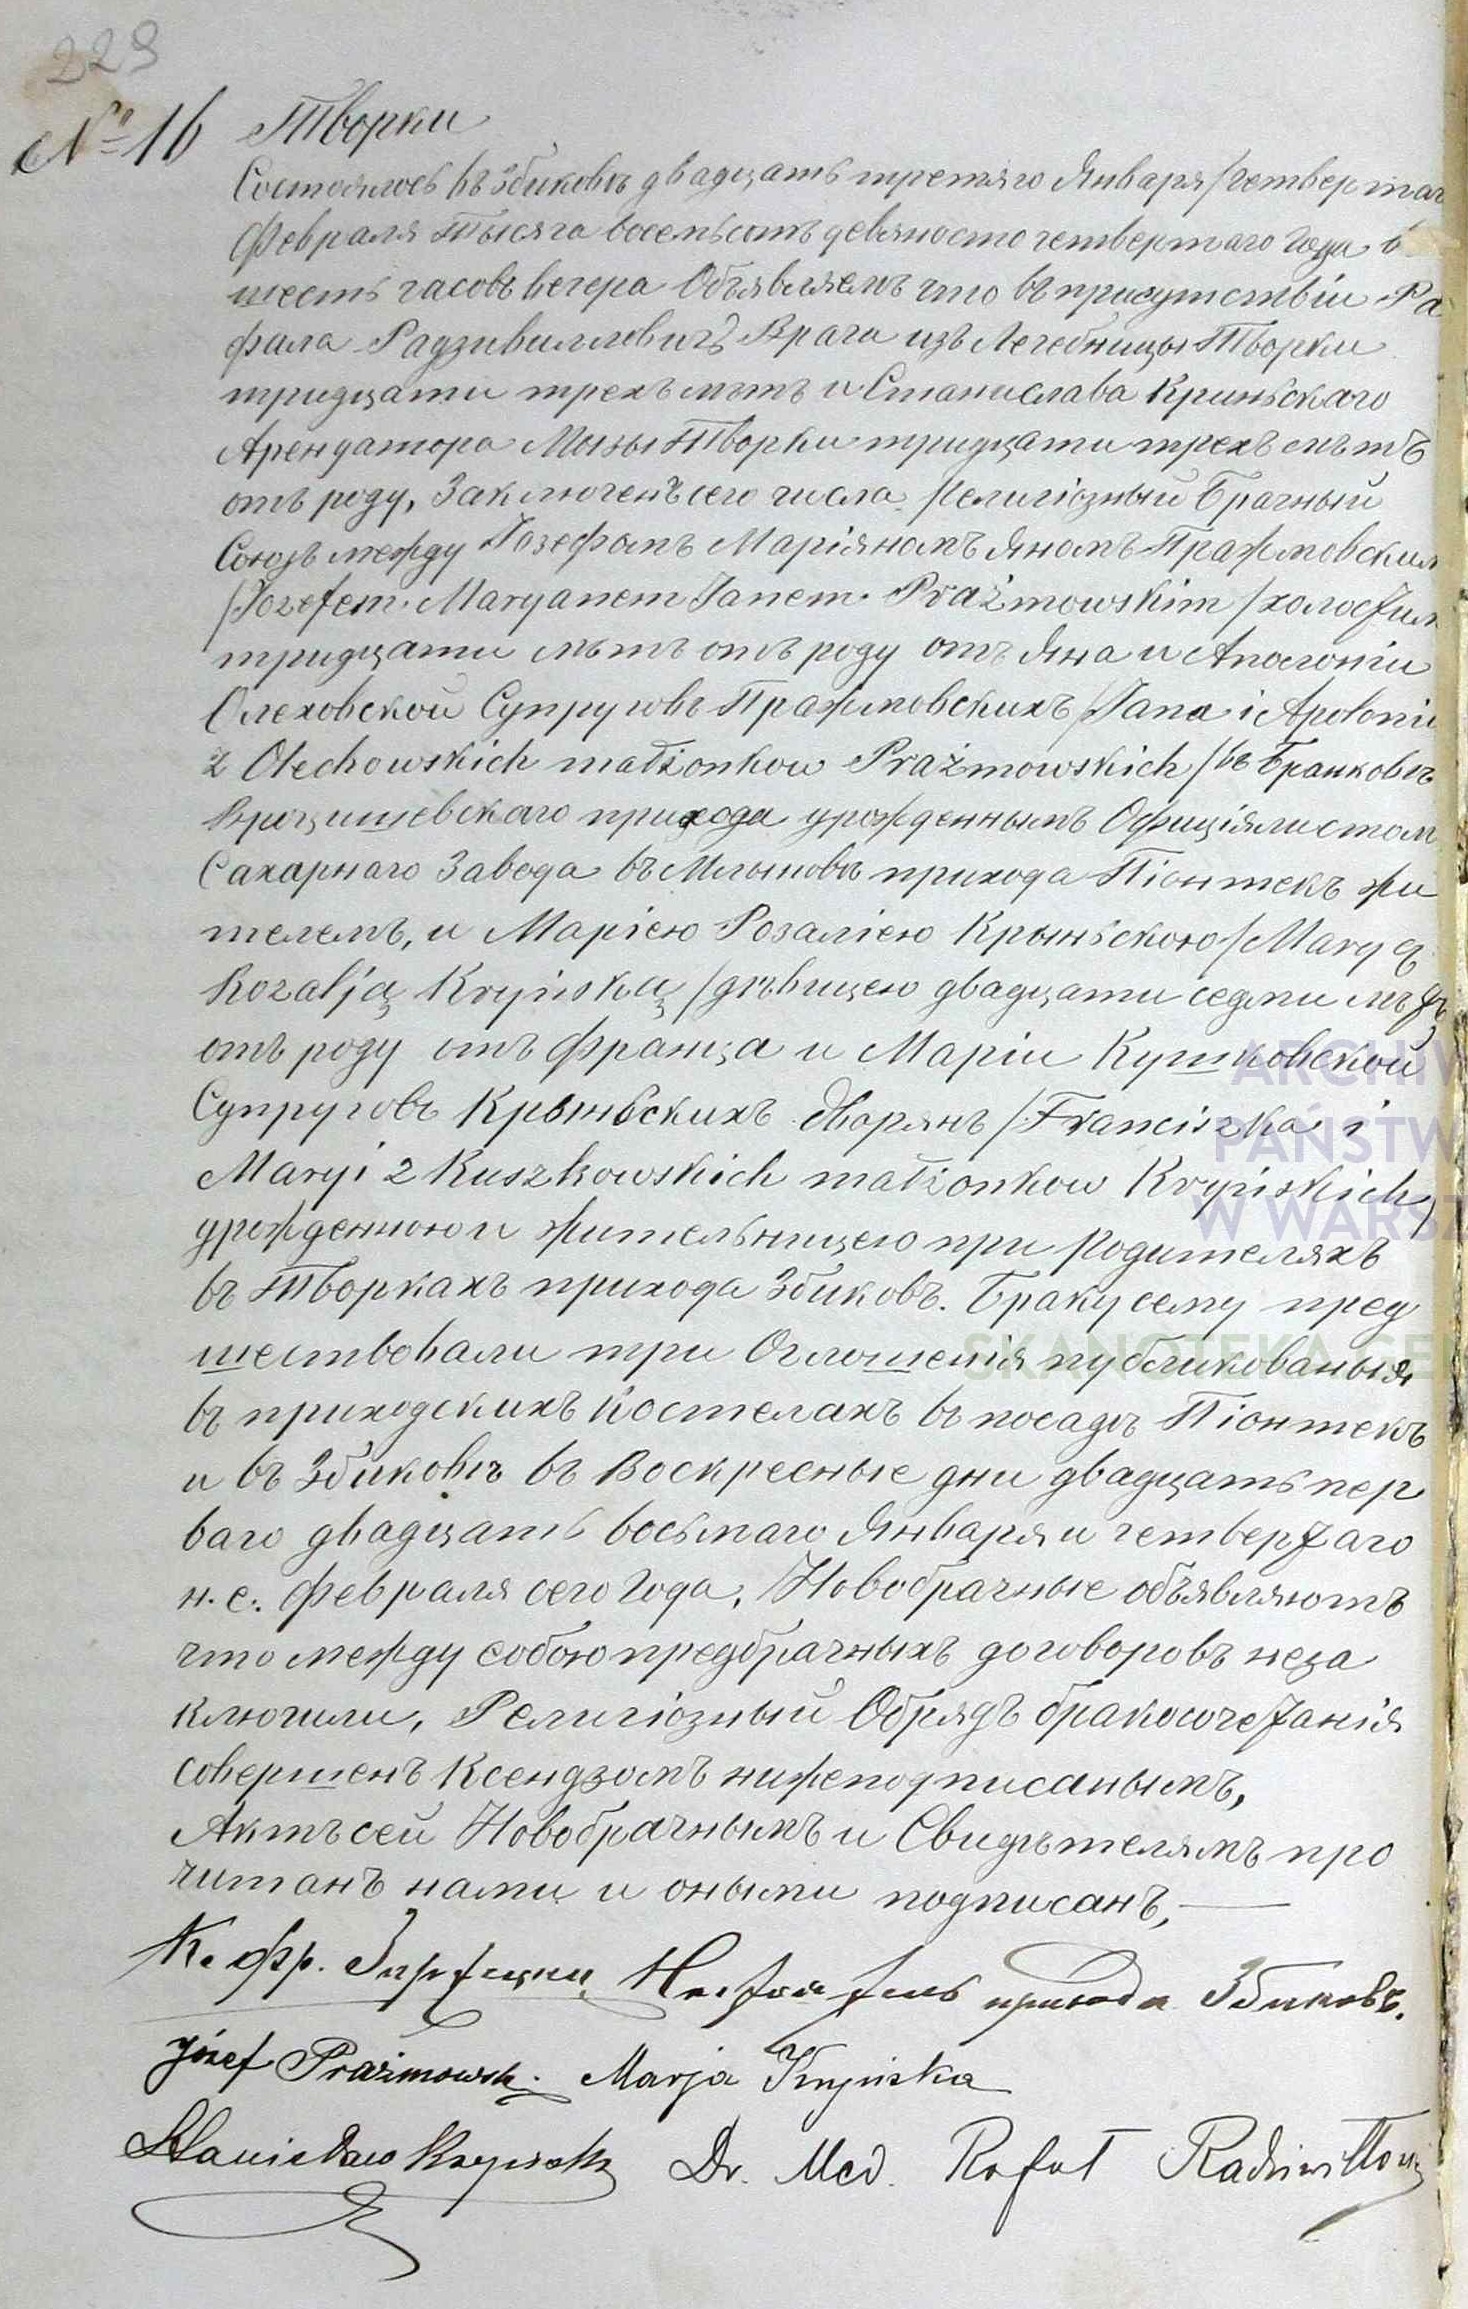 229
№ 16 Творки
Состоялось въ Збиковѣ двадцать третяго Января /четвертаг
Февраля Тысяча восемьсотъ девяносто четвертаго Года в
шесть часовъ вечера Объявляемъ что въ присутствіи Ра
фала Радзивилловичъ Врача изъ Лечебницы Творки
тридцати трехъ лѣтъ и Станислава Криньскаго
Арендатора Мызы Творки тридцати трехъ лѣтъ
отъ роду, Заключенъ сего числа Религіозный Брачный
Союзъ между Іозефомъ Маріяномъ Яномъ Пражмовским
/Józefem Maryanem Janem Prażmowskim/ холостым
тридцати лѣтъ отъ роду отъ Яна и Аполоніи
Олеховской Супруговъ Пражмовскихъ /Jana i Apolonii
z Olechowskich małżonkow Prażmowskich/ въ Бранковѣ
Врацишевскаго прихода урожденнымъ Офиціялистом
Сахарнаго Завода въ Млыновѣ прихода Піонтекъ жи
телемъ, и Маріею Розаліею Крыньскою /Maryą
Rozalją Kryńską/ дѣвицею двадцати седми лѣтъ
отъ роду отъ Франца и Маріи Кушковской
Супруговъ Крыньскихъ Дворянъ /Franciszka i
Maryi z Kuszkowskich małżonkow Kryńskich/
урожденною и жительницею при родителяхъ
въ Творкахъ прихода Збиковъ. Браку сему пред
шествовали три Оглошенія публикованыя
въ приходскихъ костелахъ въ посадѣ Піонтекъ
и въ Збиковѣ въ Воскресные дни двадцать пер
ваго двадцать восьмаго Января и четвертаго
н. с. Февраля сего Года, Новобрачные объявляютъ
что между собою предбрачныхъ договоровъ неза
ключили, Религіозный Обрядъ бракосочетанія
совершенъ Ксендзомъ нижеподписанымъ,
Актъ сей Новобрачнымъ и Свидѣтелямъ про
читанъ нами и оными подписанъ,
К. Фр. Настоятель прихода Збиковъ.
Józef Prażmowsk. Marja Kryńska
Stanisław Kryński Dr. Med. Rafał Radziwiłłowi
ARCHIW
PAŃSTW
W WARSZ
SKANOTEKA GEN